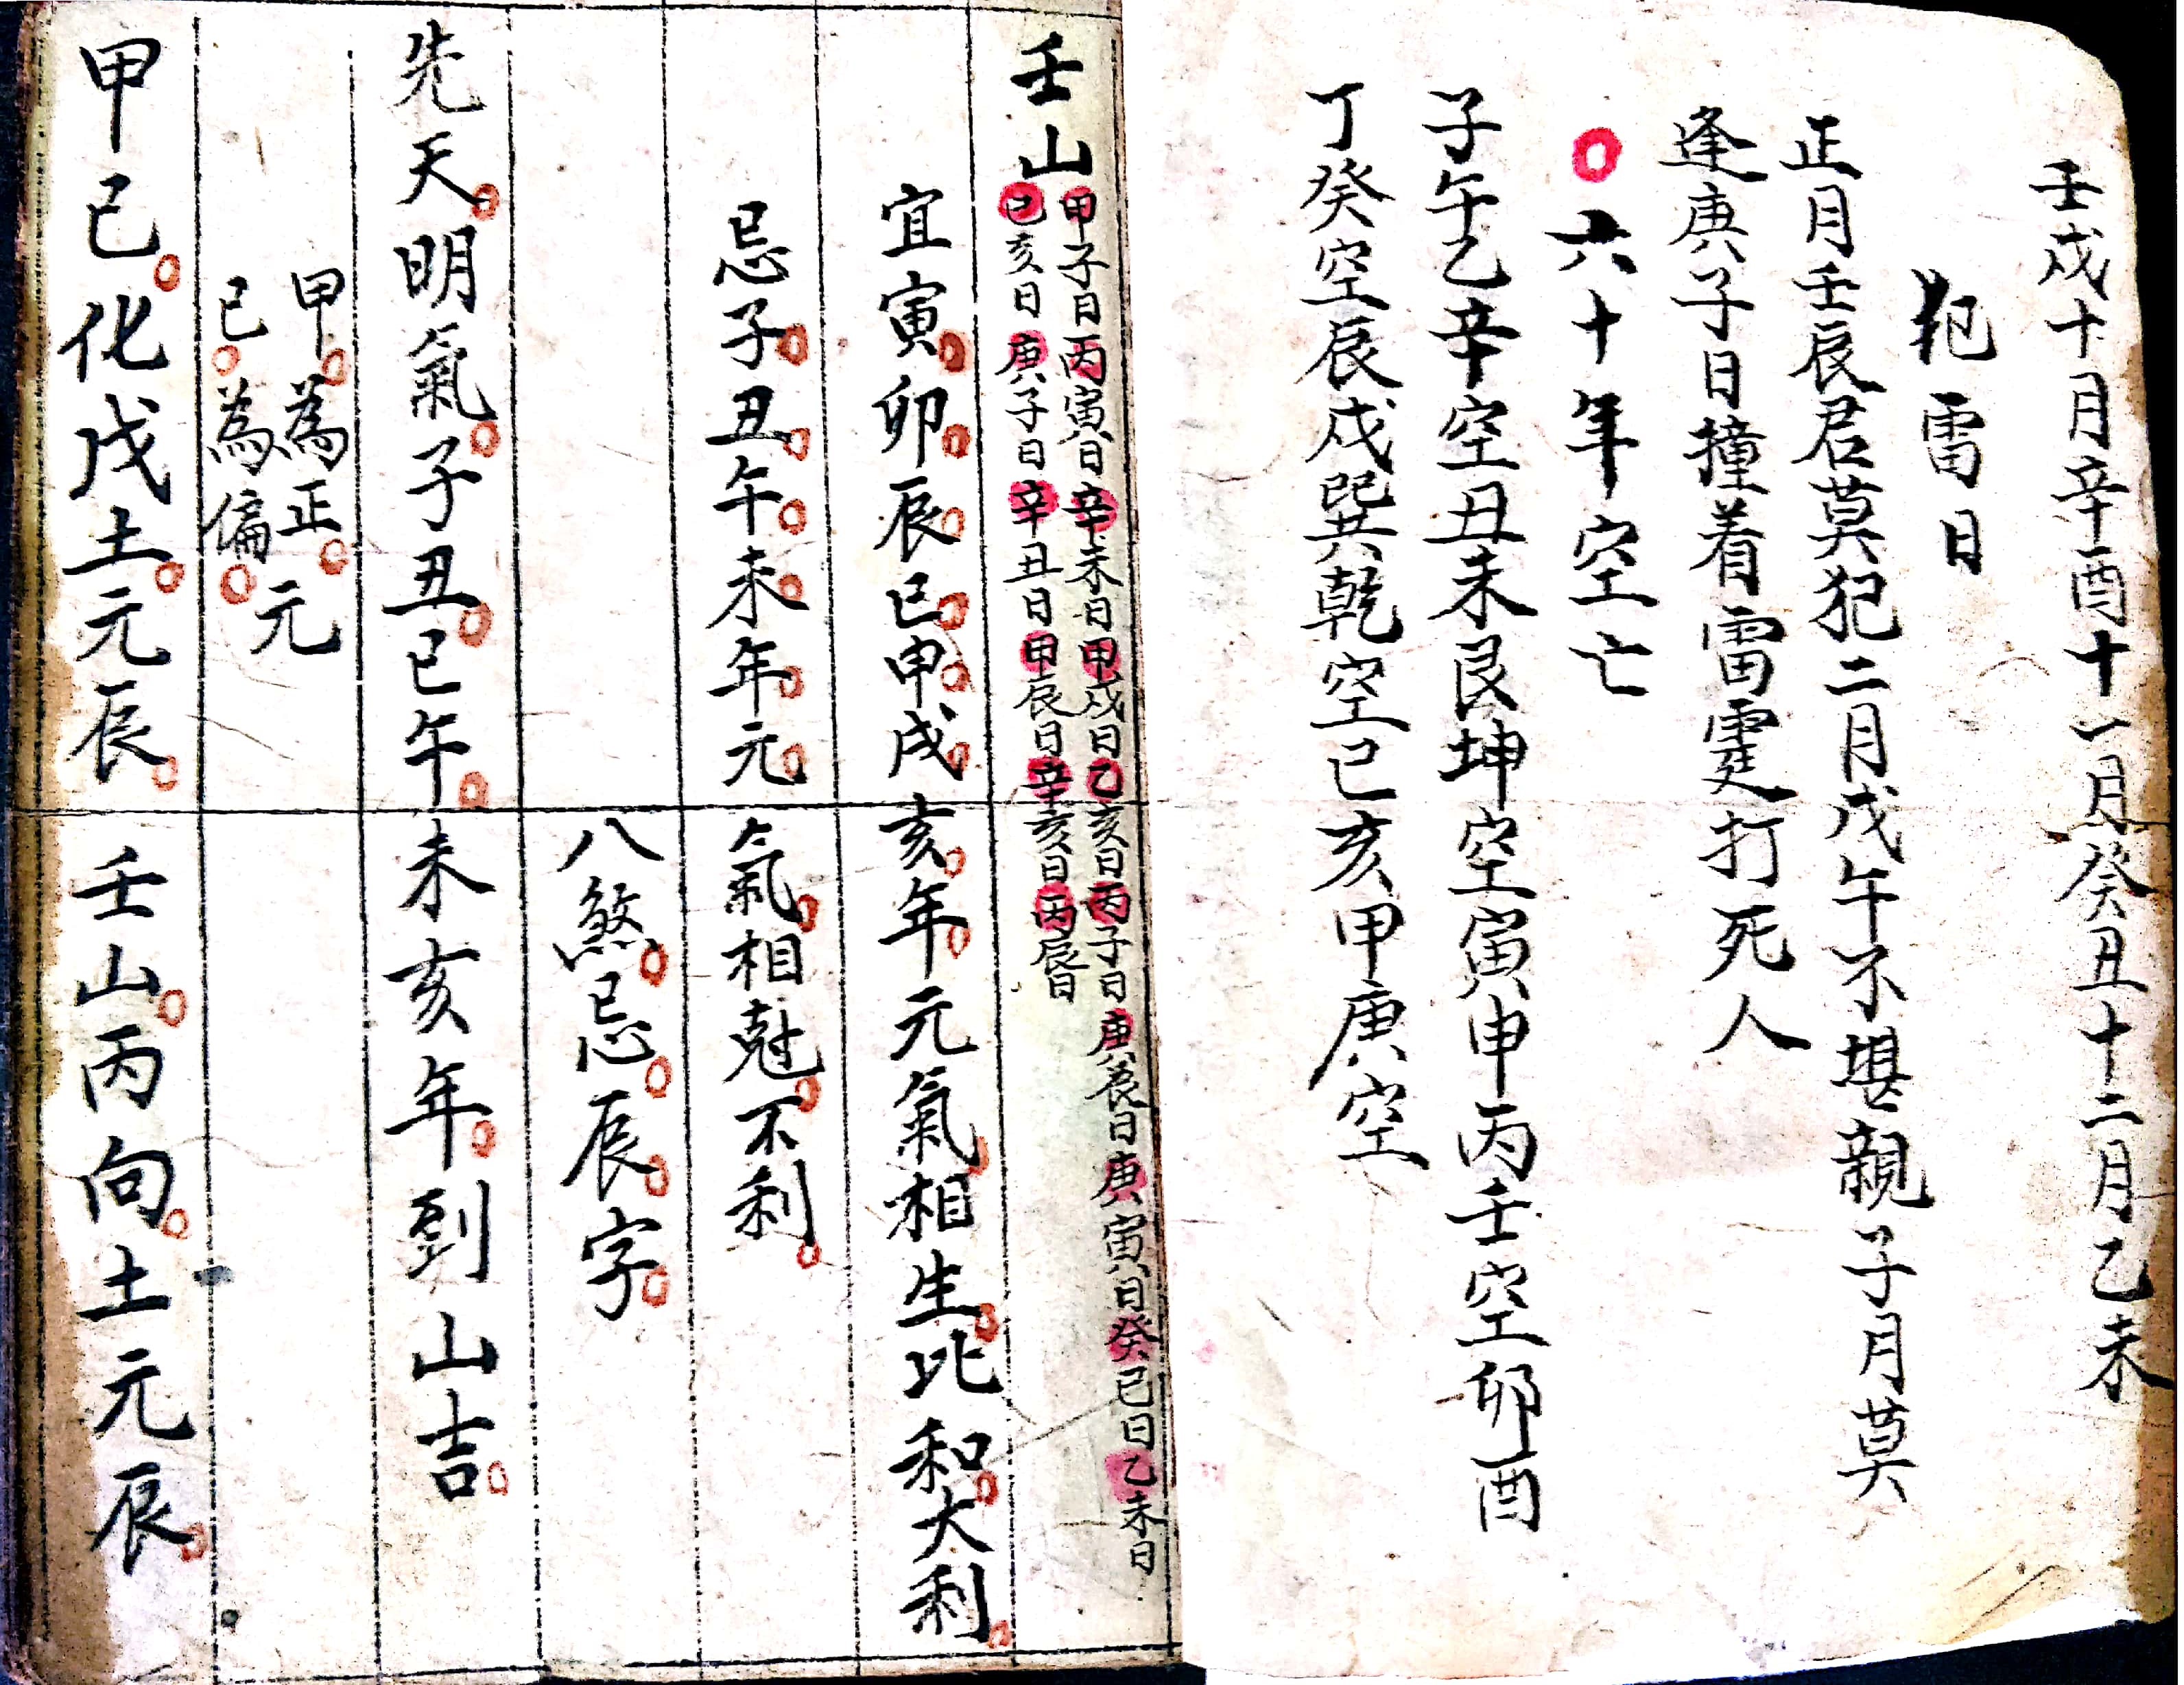 壬戌十月辛酉十一月癸丑十二月乙未
犯雷日
正月壬辰君莫犯二月戊午不堪親子月莫
逢庚子日撞着雷霆打死人
六十年空亡
子午乙辛空丑未艮坤空寅申丙壬空卯酉
丁癸空辰戌巽乾空巳亥甲庚空
壬山
甲子日丙寅日辛未日甲戌日乙亥日丙子日庚辰日庚寅日癸巳日乙未日
己亥日庚子日辛丑日甲辰日辛亥日丙辰日
宜寅卯辰巳申戌亥年元氣相生比和大利
忌子丑午未年元氣相尅不利
八煞忌辰字
先天明氣子丑巳午未亥年到山吉
甲為正
己為偏
元
甲己化戊土元辰壬山丙向土元辰